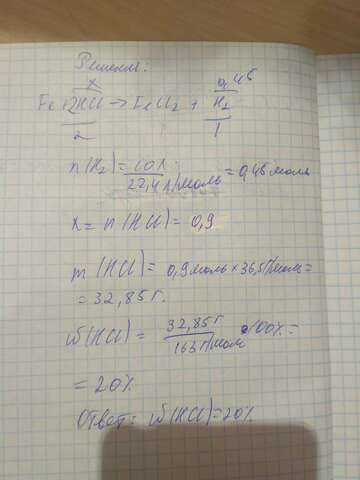 Решение:
x 0,45
Fe + 2HCl → FeCl₂ + H₂
2 1
n(H₂) = 10 л / 22,4 л/моль = 0,45 моль
X = n(HCl) = 0,9
m(HCl) = 0,9 моль × 36,5 г/моль =
= 32,85 г.
ω(HCl) = 32,85 г / 163 г/моль • 100% =
= 20%
Ответ: ω(HCl) = 20%